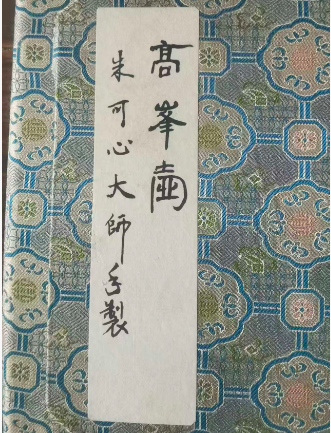 高峯壺
朱可心大師手製